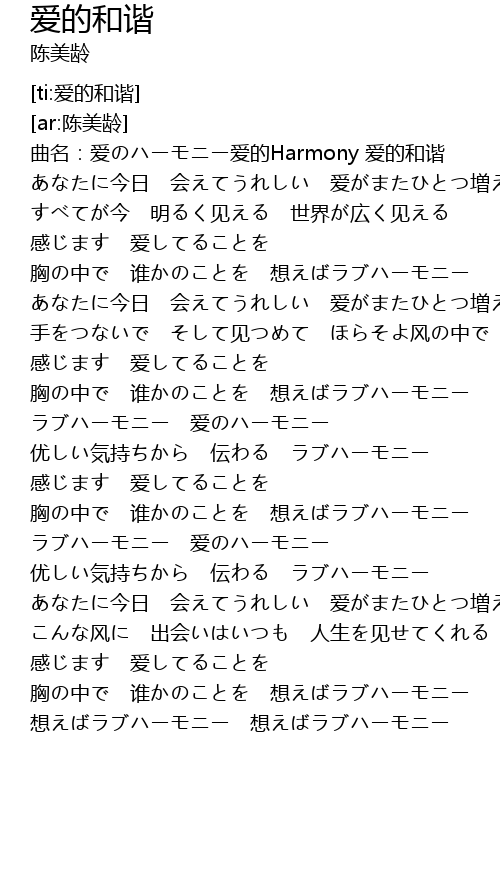 爱的和谐
陈美龄
[ti:爱的和谐]
[ar:陈美龄]
曲名：爱のハーモニー爱的Harmony 爱的和谐
あなたに今日　会えてうれしい　爱がまたひとつ増え
すべてが今　明るく见える　世界が広く见える
感じます　爱してることを
胸の中で　谁かのことを　想えばラブハーモニー
あなたに今日　会えてうれしい　爱がまたひとつ増え
手をつないで　そして见つめて　ほらそよ风の中で
感じます　爱してることを
胸の中で　谁かのことを　想えばラブハーモニー
ラブハーモニー　爱のハーモニー
优しい気持ちから　伝わる　ラブハーモニー
感じます　爱してることを
胸の中で　谁かのことを　想えばラブハーモニー
ラブハーモニー　爱のハーモニー
优しい気持ちから　伝わる　ラブハーモニー
あなたに今日　会えてうれしい　爱がまたひとつ増え
こんな风に　出会いはいつも　人生を见せてくれる
感じます　爱してることを
胸の中で　谁かのことを　想えばラブハーモニー
想えばラブハーモニー　想えばラブハーモニー